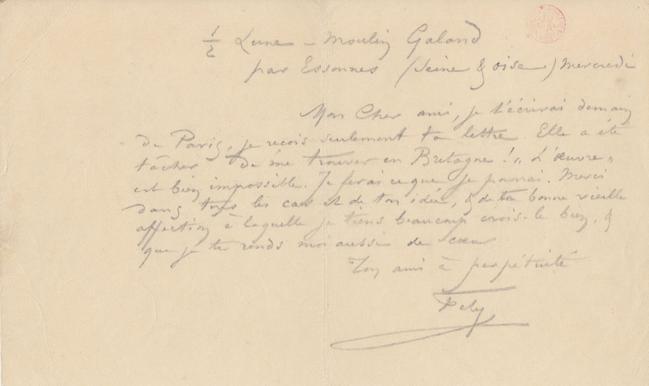 ½ Lune – Moulin Galand
par Essonnes (Seine & oise) Mercredi
Mon Cher ami, je t'écrirai demain
de Paris, je reçois seulement ta lettre Elle a été
tâcher de me trouver en Bretagne ! "L'œuvre"
est bien impossible. Je ferai ce que je pourrai. Merci
dans tous les cas et de ton idée, & de ta bonne vieille
affection à laquelle je tiens beaucoup crois-le bien, &
que je te rends moi aussi de cœur
Ton ami à perpétuité
Fely